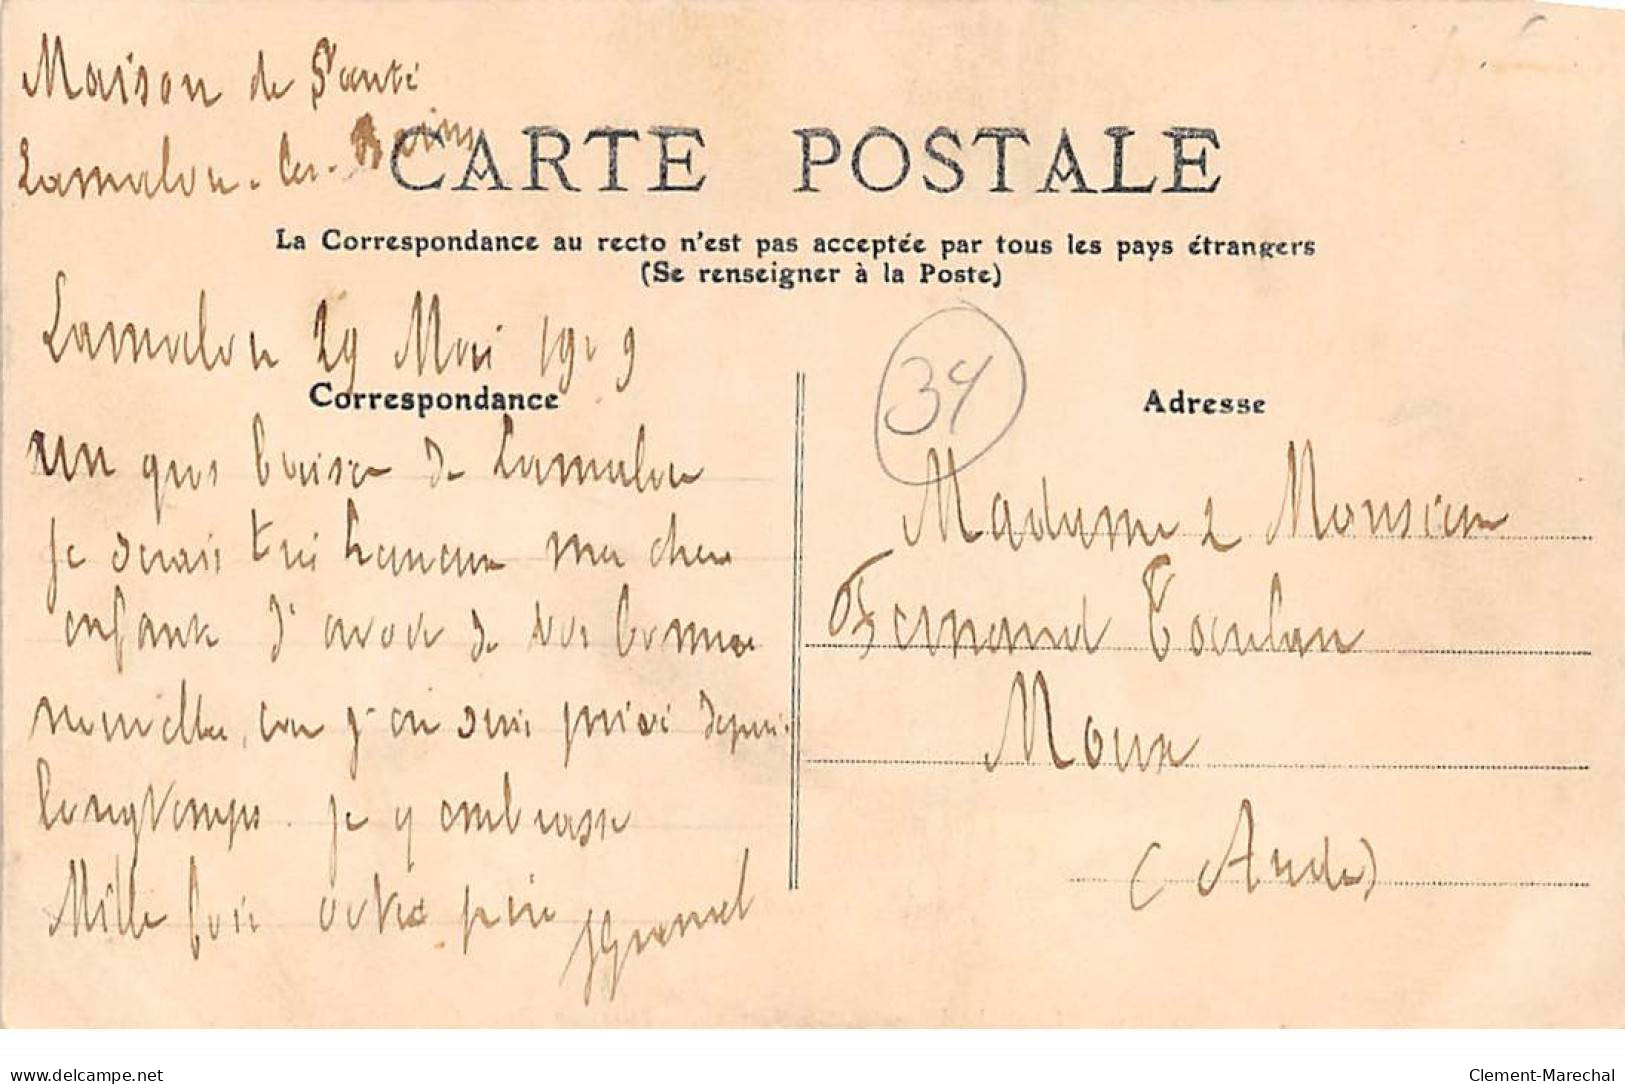 Maison de Santé
Lamalou-les-Bains
CARTE POSTALE
La Correspondance au recto n'est pas acceptée par tous les pays étrangers
(Se renseigner à la Poste)
Lamalou 29 Mai 1909
Correspondance
un gros baiser de Lamalou
je serais très heureux ma chère
enfants d'avoir de vos bonnes
nouvelles, car j'en suis privé depuis
longtemps. je y embrasse
Mille fois votre père
34
Adresse
Madame & Monsieur
Fernand
Moux
(Aude)
www.delcampe.net
Clement-Marechal